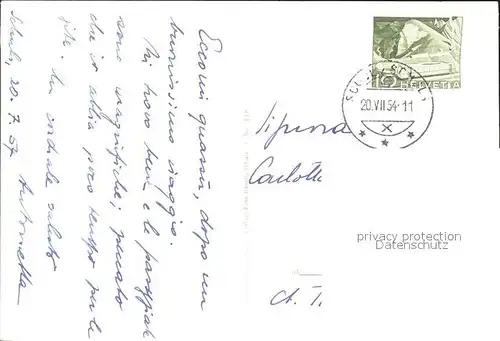 Eccomi quassù, dopo un
buonissimo viaggio.
Mi trovo bene e le passeggiate
sono magnifiche; peccato
che io abbia poco tempo per le
gite. Un cordiale saluto
Antonietta
20.7.54
HELVETIA
10
20.VII.54-11
X
Signora
Carlotta
privacy protection
Datenschutz